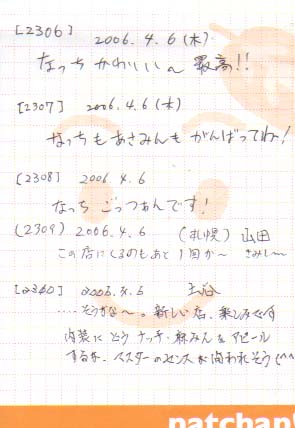 [2306] 2006.4.6(木)
なっちかわいい〜最高!!
[2307] 2006.4.6(木)
なっちもあさみんもがんばってね!
[2308] 2006.4.6
なっち ごっつぁんです!
(2309) 2006.4.6 (札幌) 山田
この店にくるのもあと1回か〜 さみしー
2006.4.6
・・・・そうかな〜。新しい店、楽しみです
内装にどうナッチ・麻みんをアピール
するか、マスターのセンスが問われそう(^^
patchan